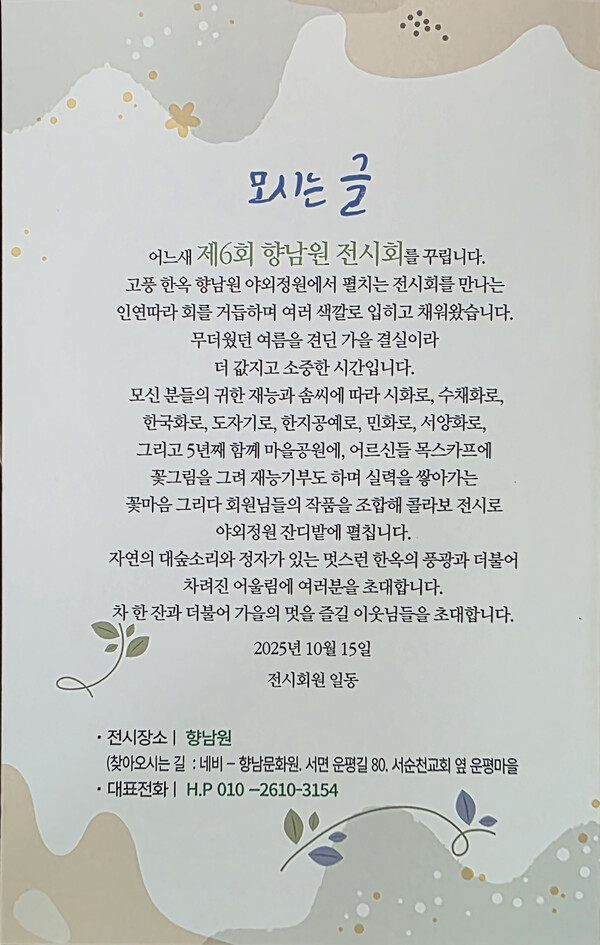 모시는 글
어느새 제6회 향남원 전시회를 꾸립니다.
고풍 한옥 향남원 야외정원에서 펼치는 전시회를 만나는
인연따라 회를 거듭하며 여러 색깔로 입히고 채워왔습니다.
무더웠던 여름을 견딘 가을 결실이라
더 값지고 소중한 시간입니다.
모신 분들의 귀한 재능과 솜씨에 따라 시화로, 수채화로,
한국화로, 도자기로, 한지공예로, 민화로, 서양화로,
그리고 5년째 함께 마을공원에, 어르신들 목스카프에
꽃그림을 그려 재능기부도 하며 실력을 쌓아가는
꽃마음 그리다 회원님들의 작품을 조합해 콜라보 전시로
야외정원 잔디밭에 펼칩니다.
자연의 대숲소리와 정자가 있는 멋스런 한옥의 풍광과 더불어
차려진 어울림에 여러분을 초대합니다.
차 한 잔과 더불어 가을의 멋을 즐길 이웃님들을 초대합니다.
2025년 10월 15일
전시회원 일동
· 전시장소 | 향남원
(찾아오시는 길 : 네비 – 향남문화원. 서면 운평길 80. 서순천교회 옆 운평마을
· 대표전화 | H.P 010 –2610-3154